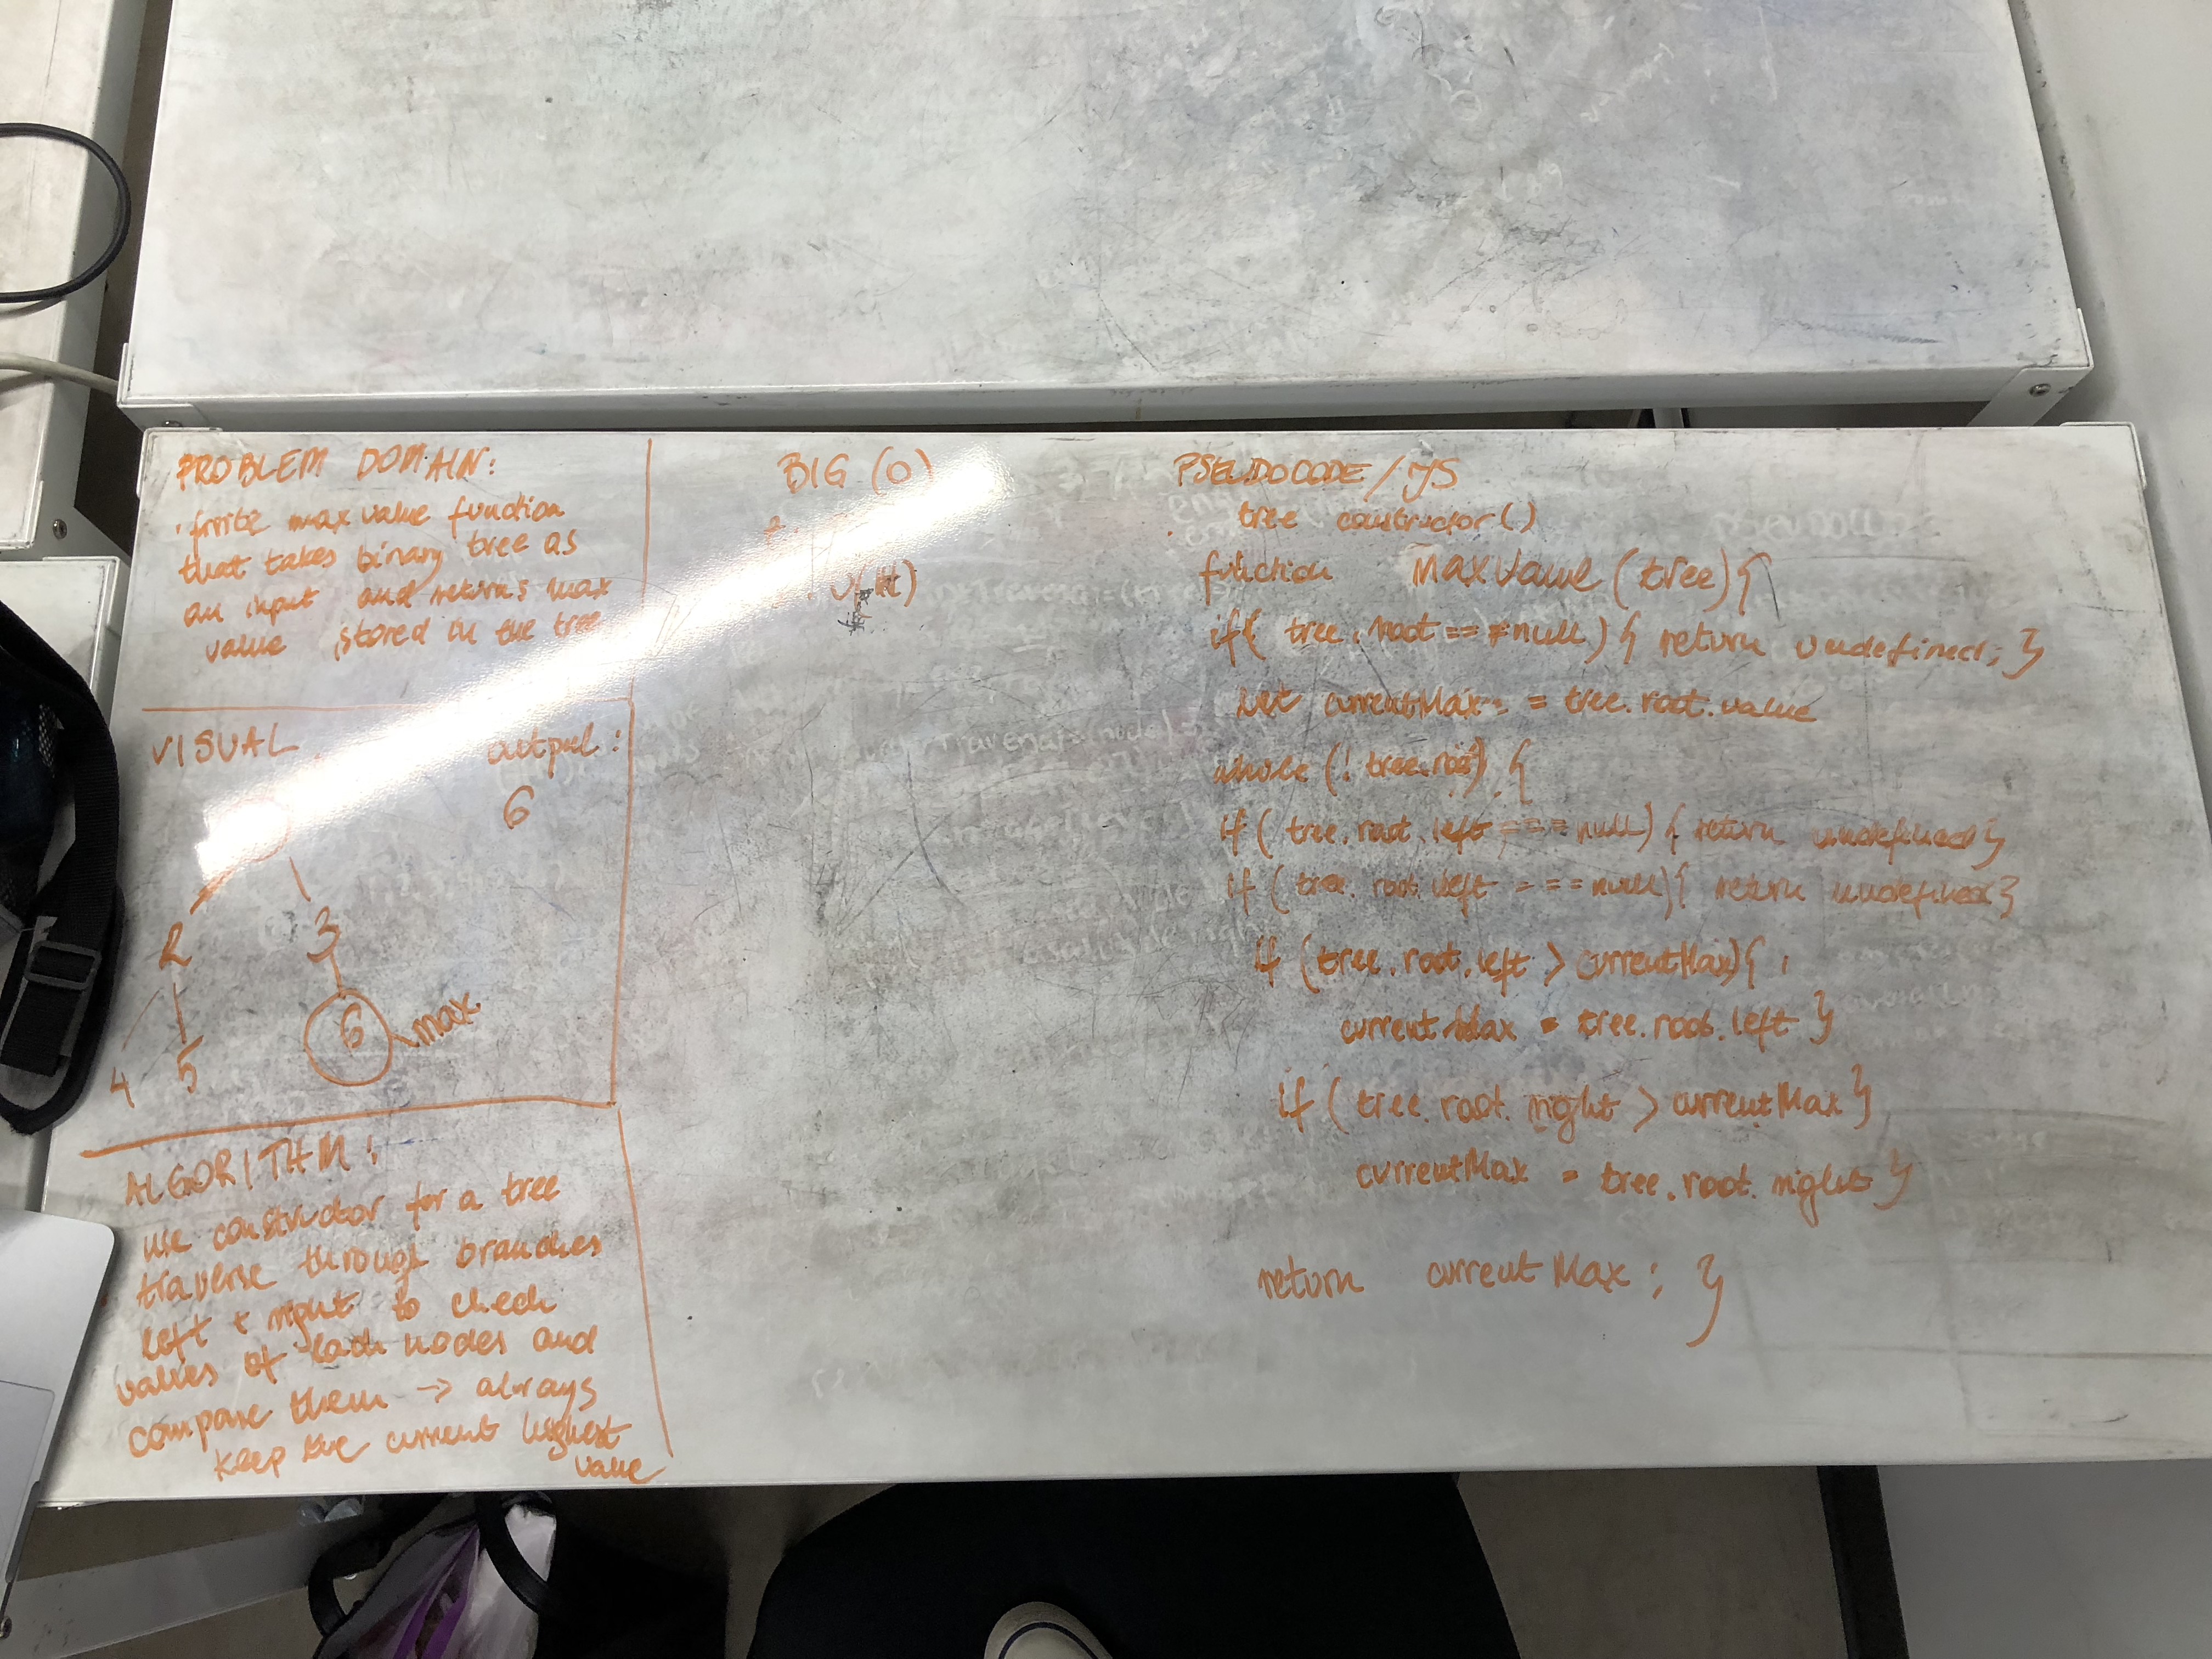 PROBLEM DOMAIN:
write max value function
that takes binary tree as
an input and returns max
value stored in the tree
VISUAL
output:
6
2
3
4
5
6
max
ALGORITHM:
use constructor for a tree
traverse through branches
left & right to check
values of each nodes and
compare them -> always
keep the current highest
value
BIG (O)
PSEUDOCODE / JS
tree constructor()
function maxValue (tree) {
if( tree.root == null) { return undefined; }
let currentMax = tree.root.value
while (! tree.root) {
if ( tree.root.left === null) { return undefined }
if ( tree.root.left === null) { return undefined }
if (tree.root.left > currentMax) {
currentMax = tree.root.left }
if ( tree.root.right > currentMax }
currentMax = tree.root.right }
return currentMax ; }